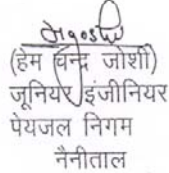 (हेम चन्द्र जोशी)
जूनियर इंजीनियर
पेयजल निगम
नैनीताल